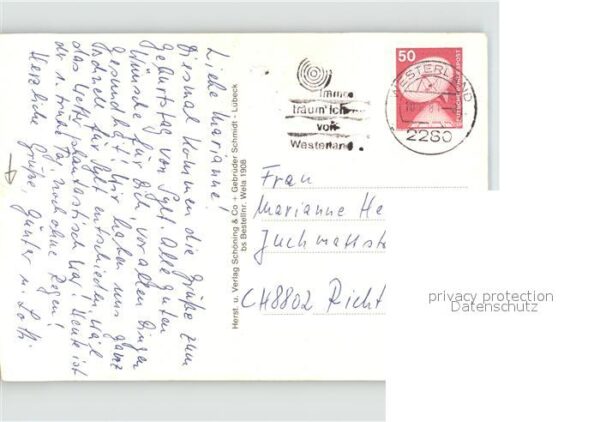 Liebe Marianne!
Diesmal kommen die Grüße zum
Geburtstag von Sylt. Alle guten
Wünsche für Dich, vor allen Dingen
Gesundheit! Wir haben uns ganz
schnell für Sylt entschieden, weil
das Wetter phantastisch war! Heute ist
der 1. trübe Tag, noch ohne Regen!
Herzliche Grüße, Günter u. Lotti
Herst. u. Verlag Schöning & Co + Gebrüder Schmidt - Lübeck
bs Bestellnr. Wela 1908
Immer
träum' ich
von
Westerland
50
DEUTSCHE BUNDESPOST
WESTERLAND
2280
Frau
Marianne He
Juchmattst
CH 8802 Richt
privacy protection
Datenschutz